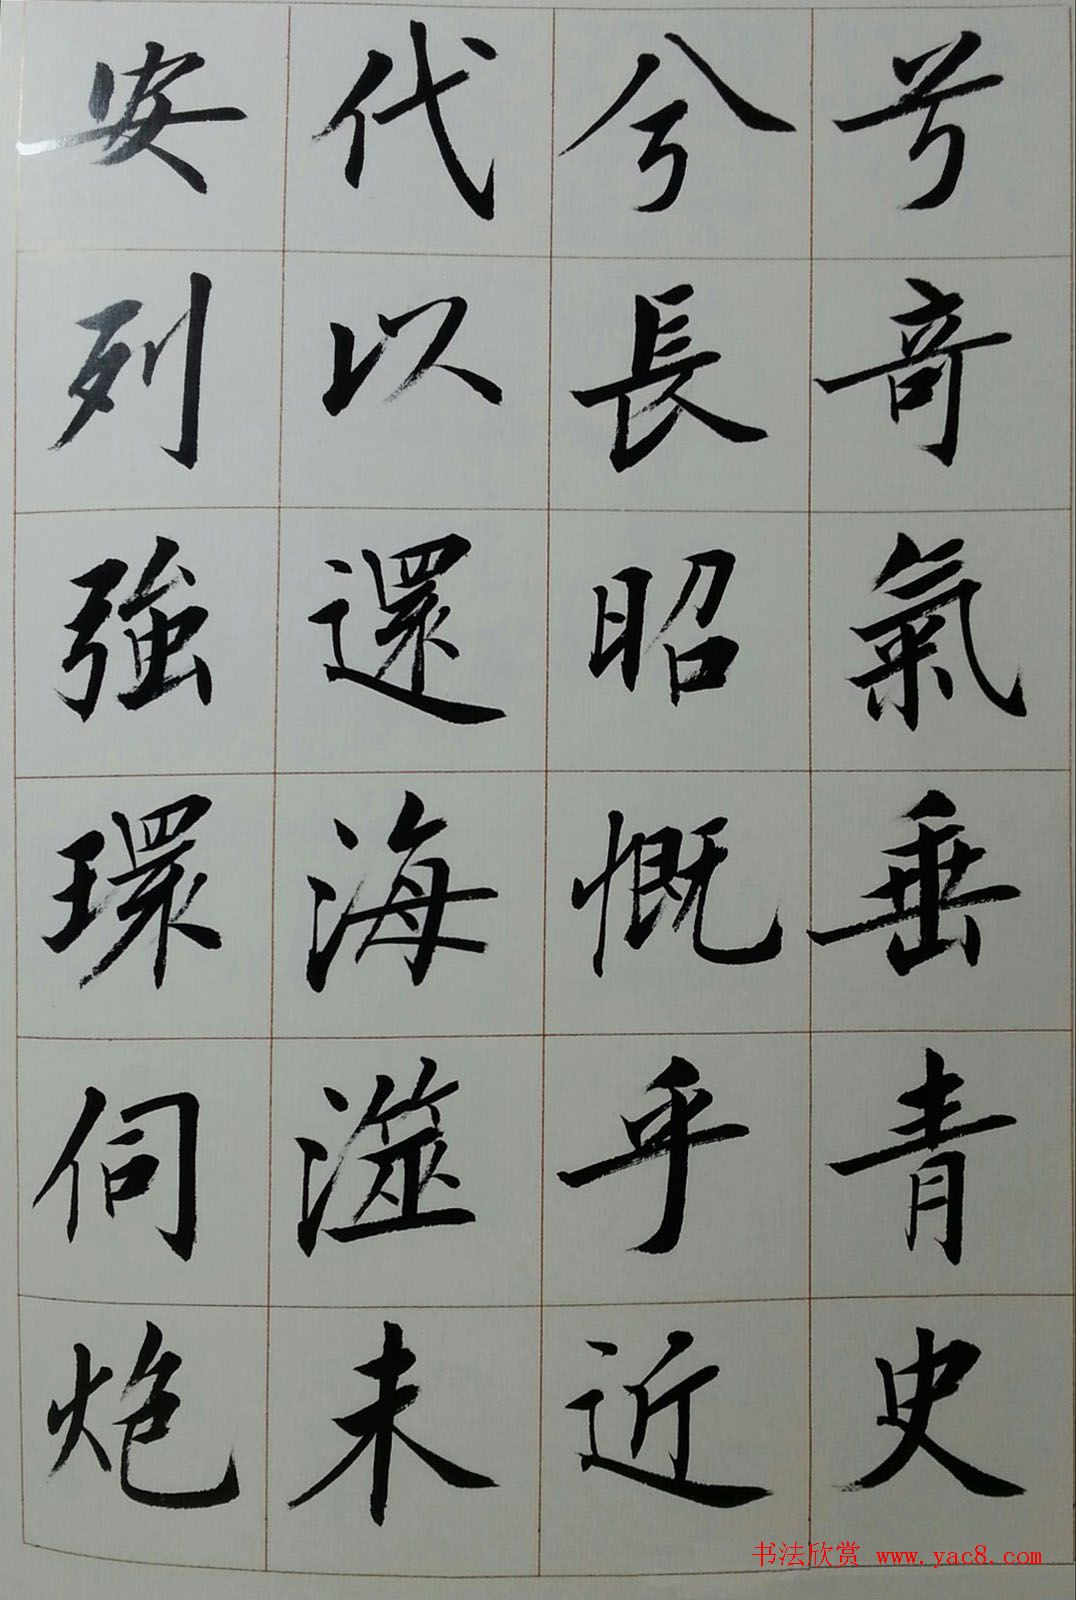 兮奇氣垂青史
兮長昭慨乎近
代以還海澨未
安列強環伺炮
书法欣赏 www.yac8.com